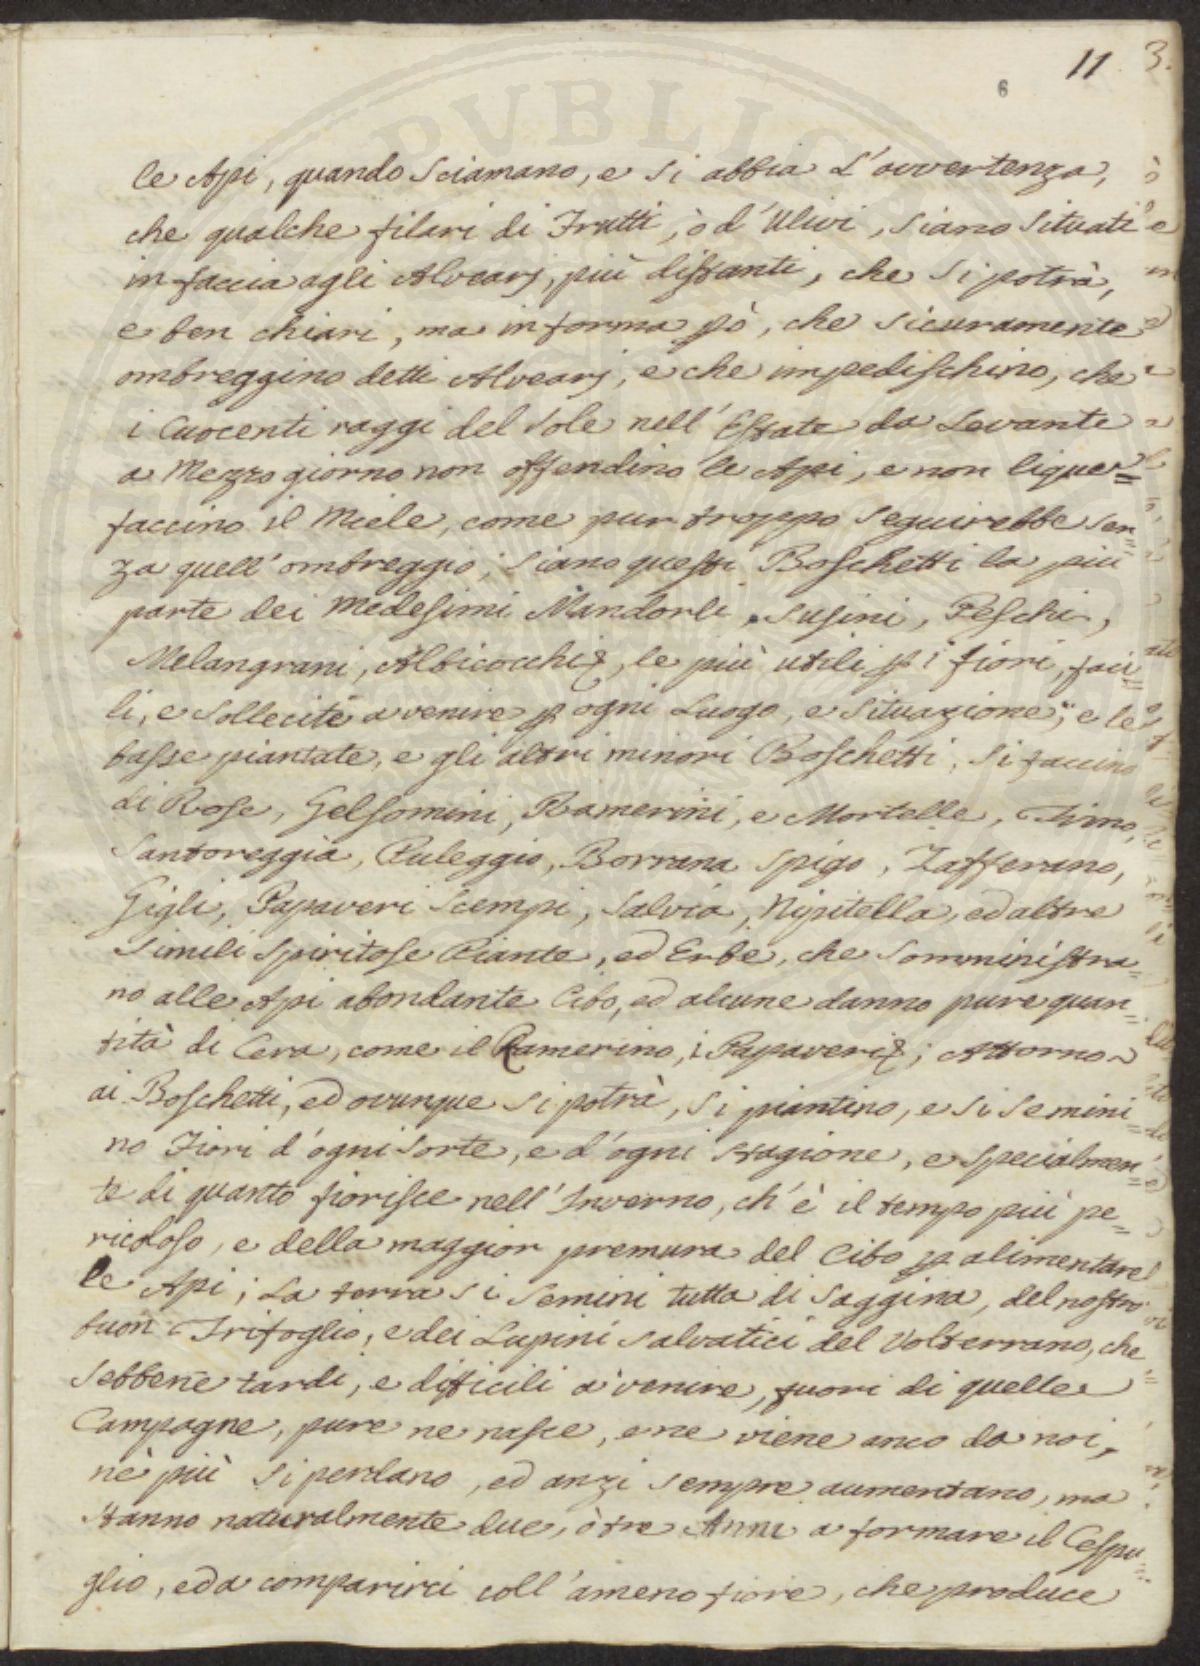 11 3.
6
le Api, quando sciamano, e si abbia l'avvertenza,
che qualche filari di Frutti, ò d'Ulivi, siano situati
in faccia agli Alvearj, più distanti, che si potrà,
e ben chiari, ma in forma ꝑò, che sicuramente
ombreggino detti Alvearj, e che impedischino, che
i Cuocenti raggi del Sole nell'Estate da Levante
a Mezzo giorno non offendino le Api, e non lique=
faccino il Miele, come pur troppo seguirebbe sen=
za quell'ombreggio; siano questi Boschetti la più
parte dei medesimi Mandorli, Susini, Peschi,
Melangrani, Albicocchi &, le più utili ꝑ i fiori, faci=
li, e sollecite a venire ꝑ ogni Luogo, e situazione; e le
basse piantate, e gli altri minori Boschetti, si faccino
di Rose, Gelsomini, Ramerini, e Mortelle, Timo,
Santoreggia, Puleggio, Borrana, Spigo, Zafferano,
Gigli, Papaveri scempi, Salvia, Nipitella, ed altre
simili spiritose Piante, ed Erbe, che somministra=
no alle Api abondante Cibo, ed alcune danno pure quan=
tità di Cera, come il Ramerino, i Papaveri &; Attorno
ai Boschetti, ed ovunque si potrà, si piantino, e si semini=
no Fiori d'ogni sorte, e d'ogni stagione, e specialmen=
te di quanto fiorisce nell'Inverno, ch'è il tempo più pe=
ricoloso, e della maggior premura del Cibo ꝑ alimentare
le Api; La terra si semini tutta di Saggina, del nostro
buon Trifoglio, e dei Lupini salvatici del Volterrano, che
sebbene tardi, e difficili a venire, fuori di quelle
Campagne, pure ne nasce, e ne viene anco da noi,
nè più si perdano, ed anzi sempre aumentano, ma
stanno naturalmente due, ò tre Anni a formare il Cespu=
glio, ed a comparirci coll'ameno fiore, che produce